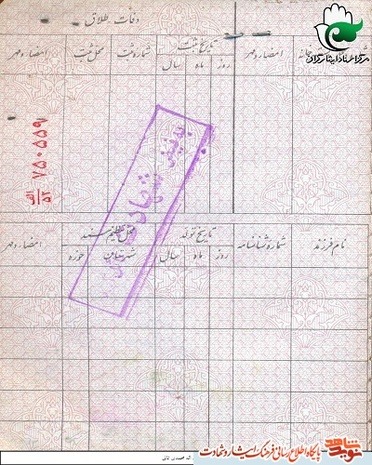 مرکز اسناد ایثارگران
دفعات طلاق
امضاء و مهر
تاریخ ثبت
روز
ماه
سال
شماره ثبت
محل ثبت
امضاء و مهر
۷۵۰۵۵۹
الف
۵۲
نام فرزند
شماره شناسنامه
تاریخ تولد
روز
ماه
سال
محل تنظیم سند
حوزه
امضاء و مهر
نوید شاهد
پایگاه اطلاع رسانی فرهنگ ایثار و شهادت